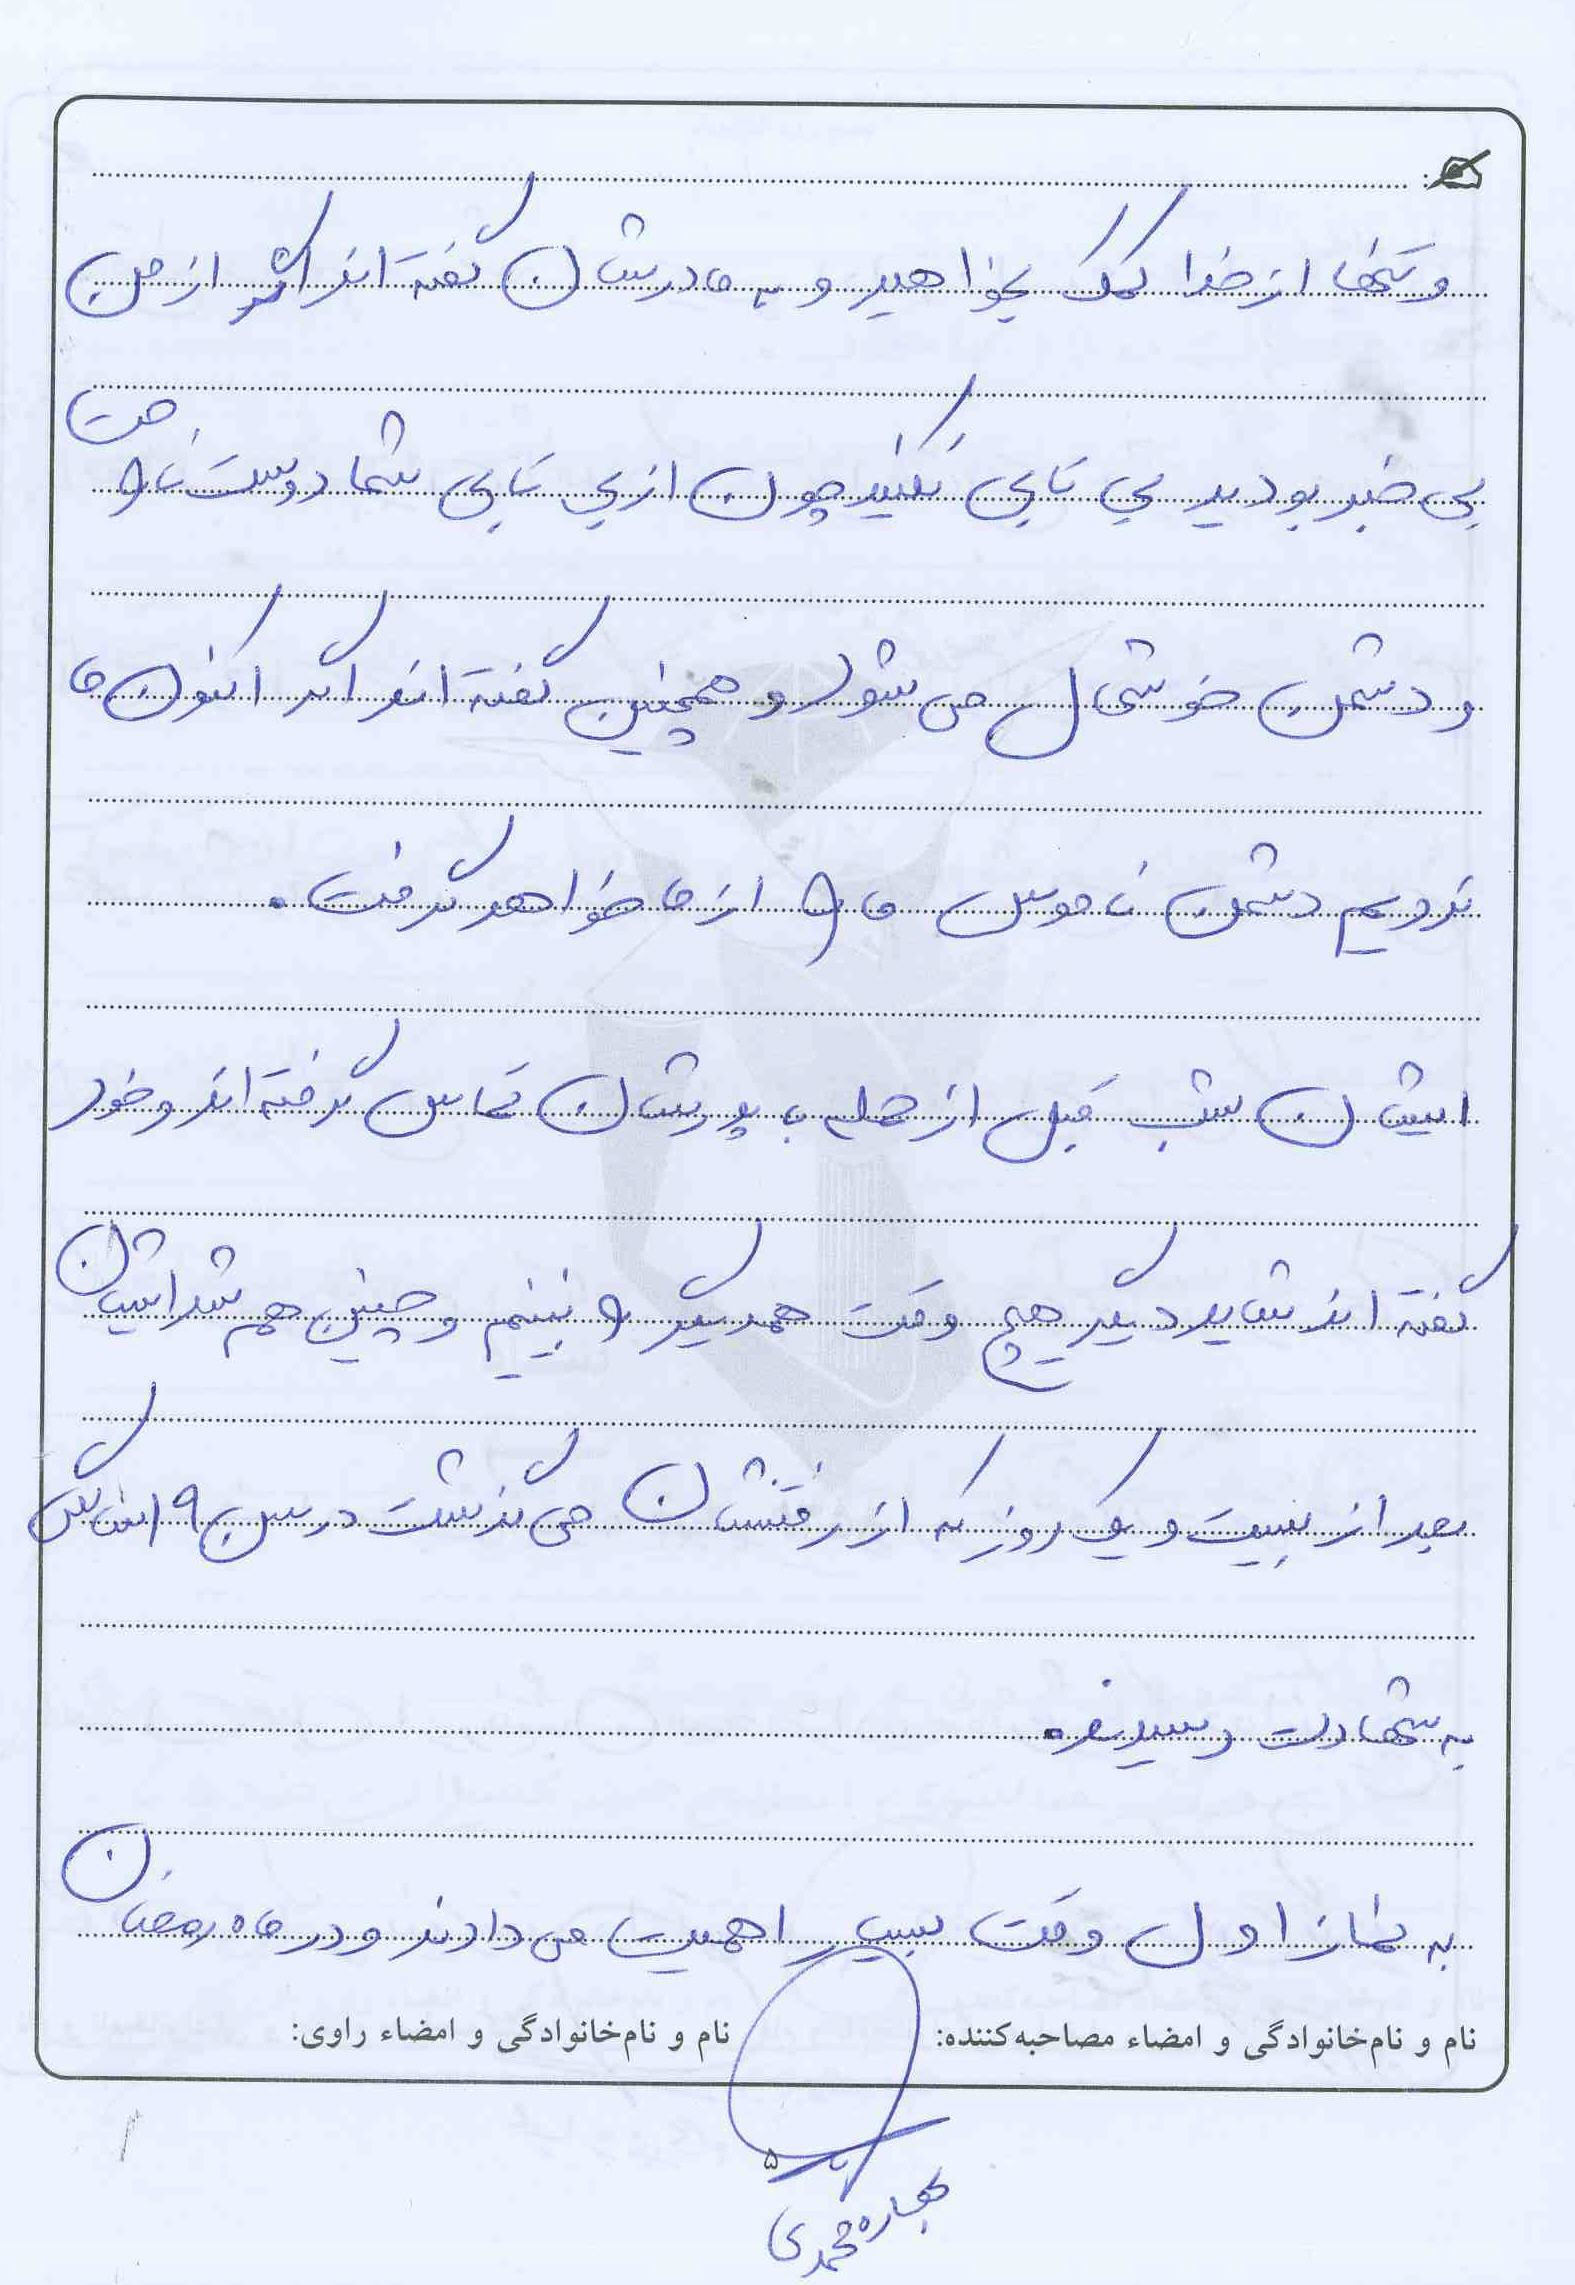 و تنها از خدا کمک بخواهید و به مادرشان گفته اند اگر از من
بی خبر بودید بی تابی نکنید چون از بی تابی شما دوست ناراحت
و دشمن خوشحال می شود و همچنین گفته اند اگر اکنون ما
نرویم دشمن ناموس ما را از ما خواهد گرفت.
ایشان شب قبل از حمله با پدرشان تماس گرفته اند و خود
گفته اند شاید دیگر هیچ وقت همدیگر را نبینیم و چنین هم شد ایشان
بعد از بیست و یک روز که از رفتنشان می گذشت در سن ۱۹ سالگی
به شهادت رسیدند.
به نماز اول وقت بسیار اهمیت می دادند و در ماه رمضان
نام و نام‌خانوادگی و امضاء مصاحبه‌کننده: نام و نام‌خانوادگی و امضاء راوی:
۵
محمدی